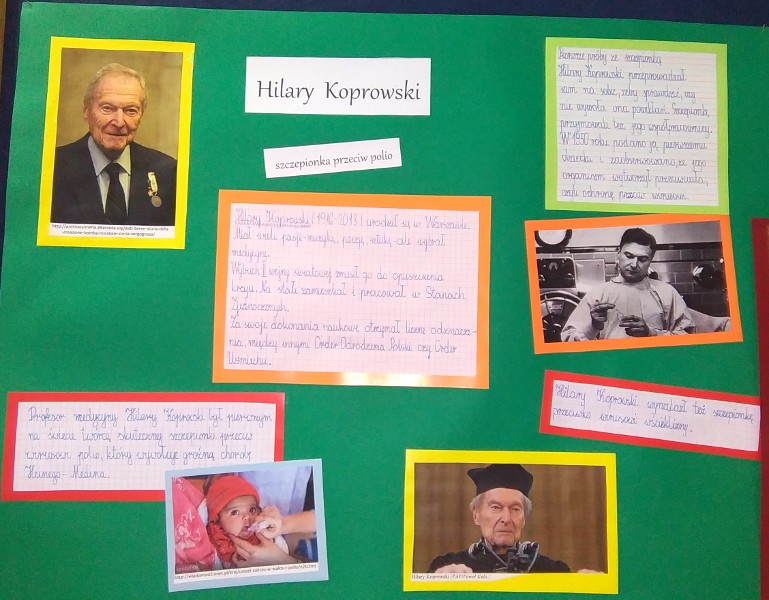 Hilary Koprowski
szczepionka przeciw polio
Pierwsze próby ze szczepionką
Hilary Koprowski przeprowadzał
sam na sobie, żeby sprawdzić, czy
nie wywoła ona powikłań. Szczepionkę
przyjmowali też jego współpracownicy.
W 1950 roku podano ją pierwszemu
dziecku i zaobserwowano, że jego
organizm wytworzył przeciwciała,
czyli ochronę przeciw wirusom.
Hilary Koprowski (1916-2013) urodził się w Warszawie.
Miał wiele pasji-muzykę, poezję, sztukę-ale wybrał
medycynę.
Wybuch II wojny światowej zmusił go do opuszczenia
kraju. Na stałe zamieszkał i pracował w Stanach
Zjednoczonych.
Za swoje dokonania naukowe otrzymał liczne odznacze-
nia, między innymi Order Odrodzenia Polski czy Order
Uśmiechu.
Profesor medycyny Hilary Koprowski był pierwszym
na świecie twórcą skutecznej szczepionki przeciw
wirusowi polio, który wywołuje groźną chorobę
Heinego-Medina.
Hilary Koprowski wynalazł też szczepionkę
przeciwko wirusowi wścieklizny.
Hilary Koprowski